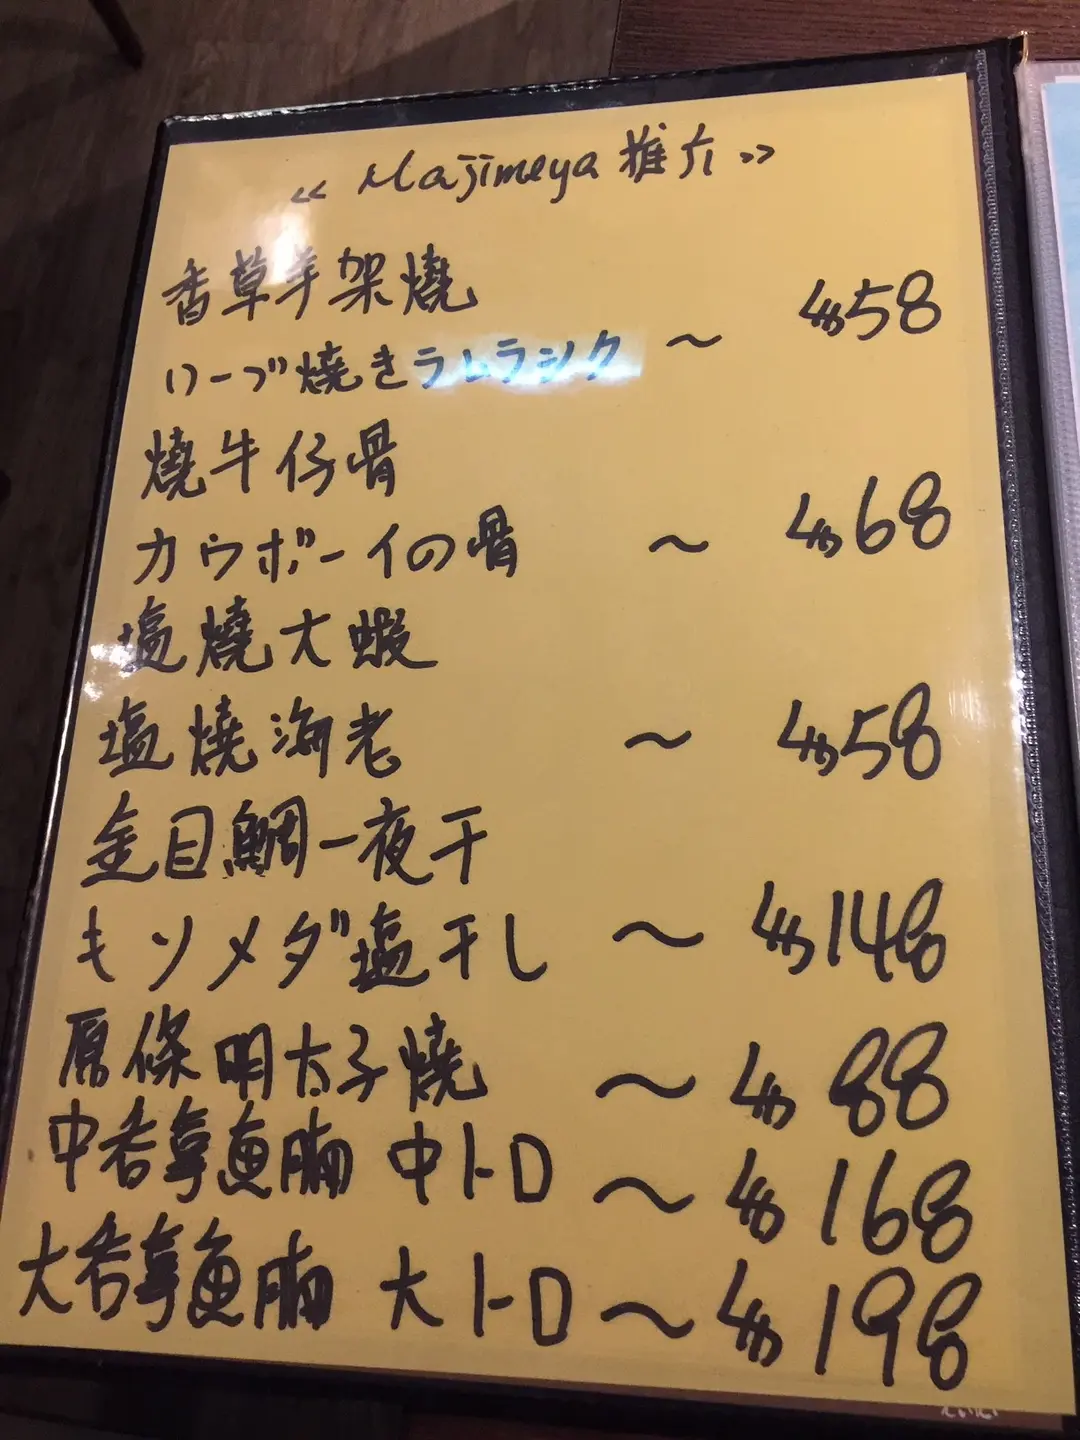 《 Majimeya 推介 》
香草羊架燒
ハーブ焼きラムラシク ～ $58
燒牛仔骨
カウボーイの骨 ～ $68
塩燒大蝦
塩燒海老 ～ $58
金目鯛一夜干
キソメダ塩干し ～ $148
原條明太子燒 ～ $88
中吞拿魚腩 中トロ ～ $168
大吞拿魚腩 大トロ ～ $198